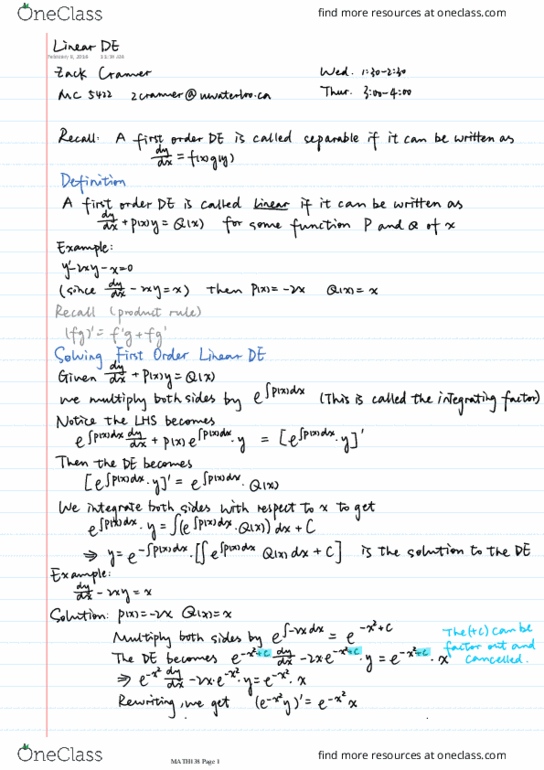 OneClass
find more resources at oneclass.com
Linear DE
February 5, 2016
Zack Cramer Wed. 1:30-2:30
MC 5422 zcramer@uwaterloo.ca Thur. 3:00-4:00
Recall: A first order DE is called separable if it can be written as
dy/dx = f(x)g(y)
Definition
A first order DE is called linear if it can be written as
dy/dx + P(x)y = Q(x) for some function P and Q of x
Example:
y'-2xy-x=0
(since dy/dx - 2xy = x) then P(x) = -2x Q(x) = x
Recall (product rule)
(fg)' = f'g + fg'
Solving First Order Linear DE
Given dy/dx + P(x)y = Q(x)
we multiply both sides by e^∫P(x)dx (This is called the integrating factor)
Notice the LHS becomes
e^∫P(x)dx dy/dx + P(x)e^∫P(x)dx · y = [e^∫P(x)dx · y]'
Then the DE becomes
[e^∫P(x)dx · y]' = e^∫P(x)dx · Q(x)
We integrate both sides with respect to x to get
e^∫P(x)dx · y = ∫(e^∫P(x)dx · Q(x)) dx + C
⇒ y = e^-∫P(x)dx · [∫e^∫P(x)dx Q(x) dx + C] is the solution to the DE
Example:
dy/dx - 2xy = x
Solution: P(x) = -2x Q(x) = x
Multiply both sides by e^∫-2xdx = e^-x²+C
The DE becomes e^-x²+C dy/dx - 2xe^-x²+C · y = e^-x²+C · x
The (+C) can be
factor out and
cancelled.
⇒ e^-x² dy/dx - 2x·e^-x² · y = e^-x² · x
Rewriting, we get (e^-x² y)' = e^-x² x
MATH138 Page 1
OneClass
find more resources at oneclass.com